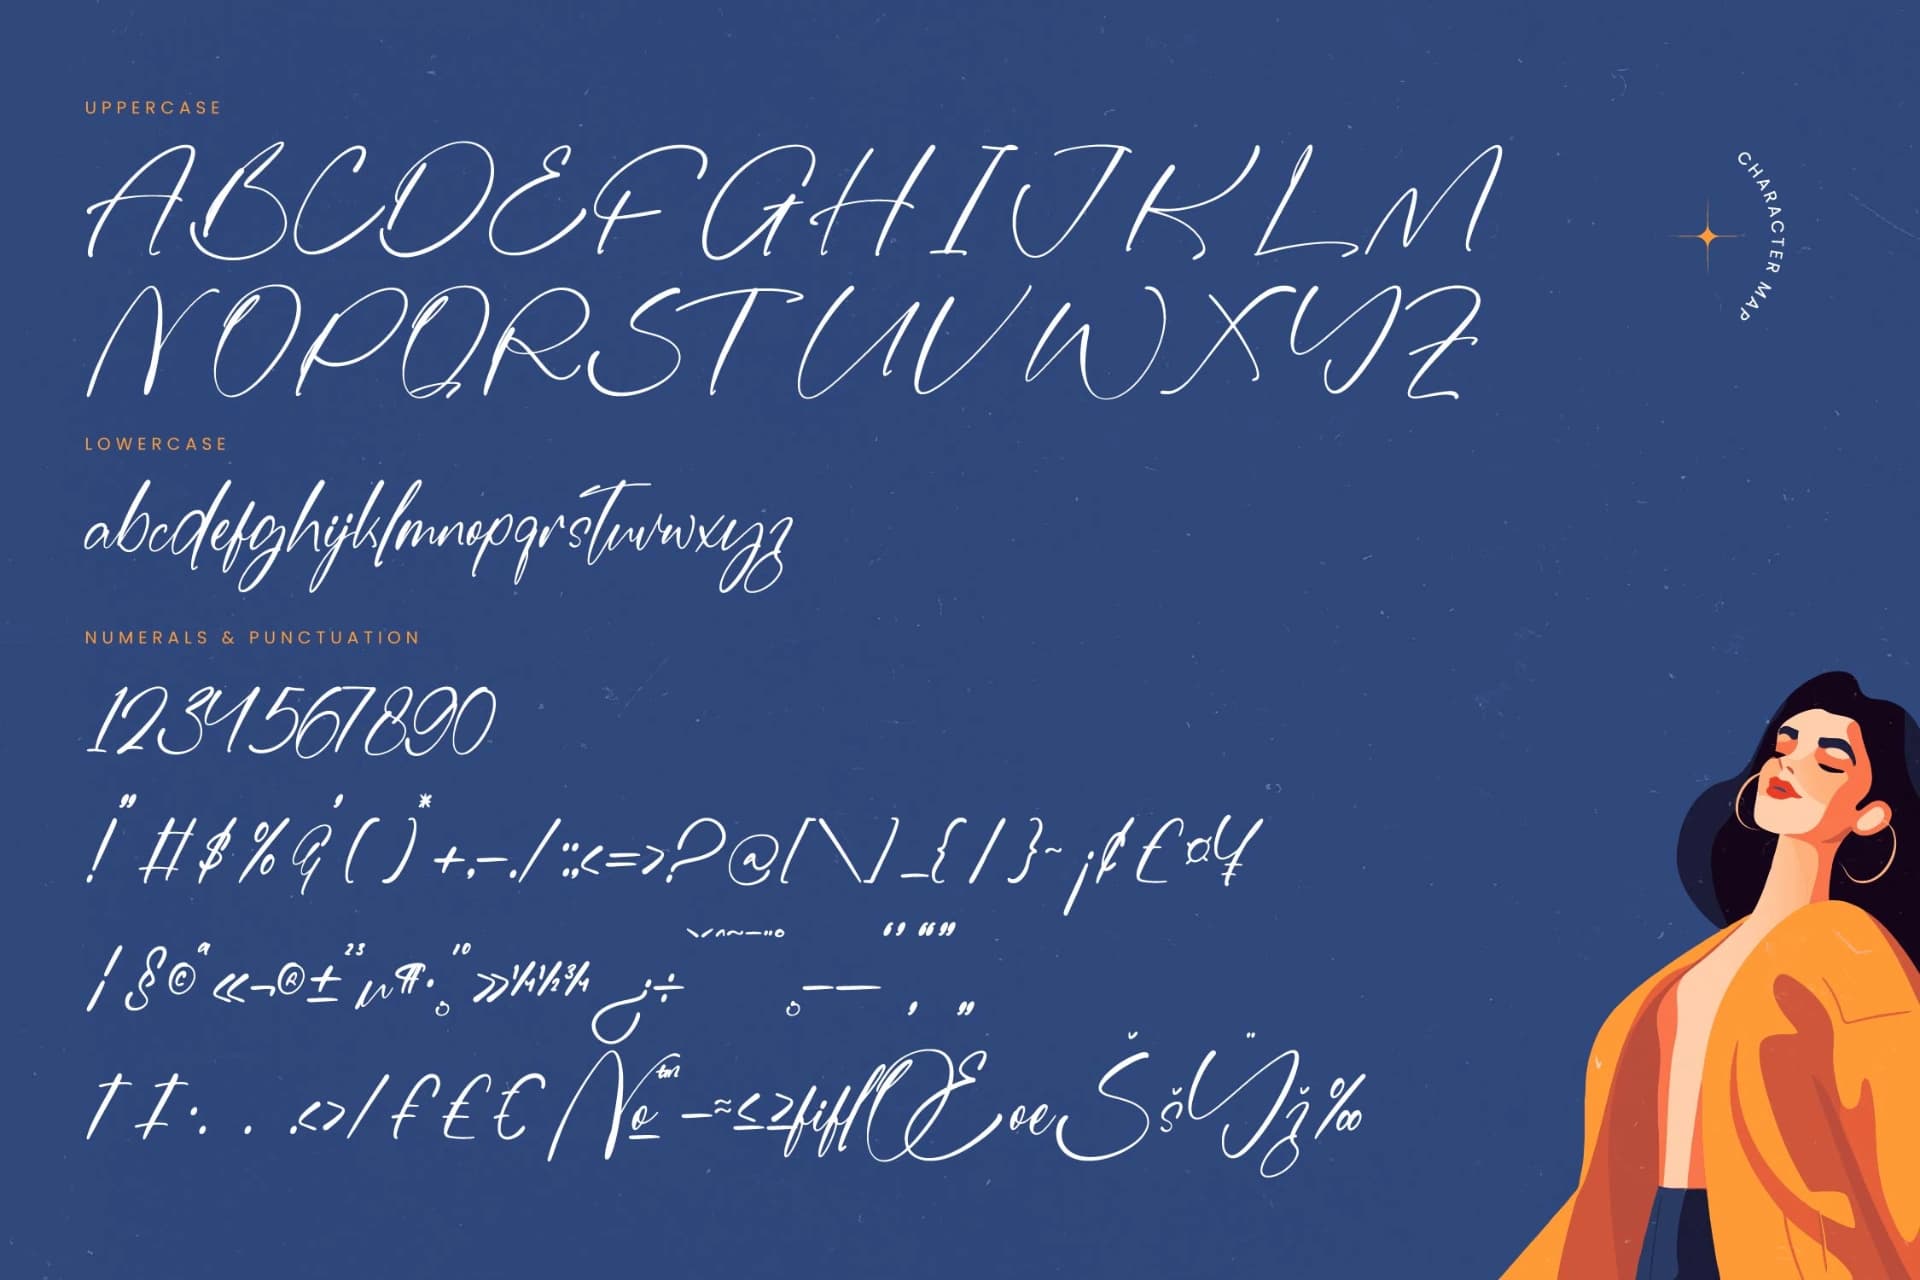 UPPERCASE
ABCDEFGHIJKLM
NOPQRSTUVWXYZ
CHARACTER MAP
LOWERCASE
abcdefghijklmnopqrstuvwxyz
NUMERALS & PUNCTUATION
1234567890
!"#$%&'()*+,-./:;<=>?@[\]_{|}~¡¢£¤¥
¦§©ª«¬®±²³µ¶·¸¹º»¼½¾¿÷ˋˇˆ˜¯˙¨˚¸–—‘’‚“”„
†‡•. . …‹›⁄₣£€№™−≈≤≥fiflŒœŠšŸž‰